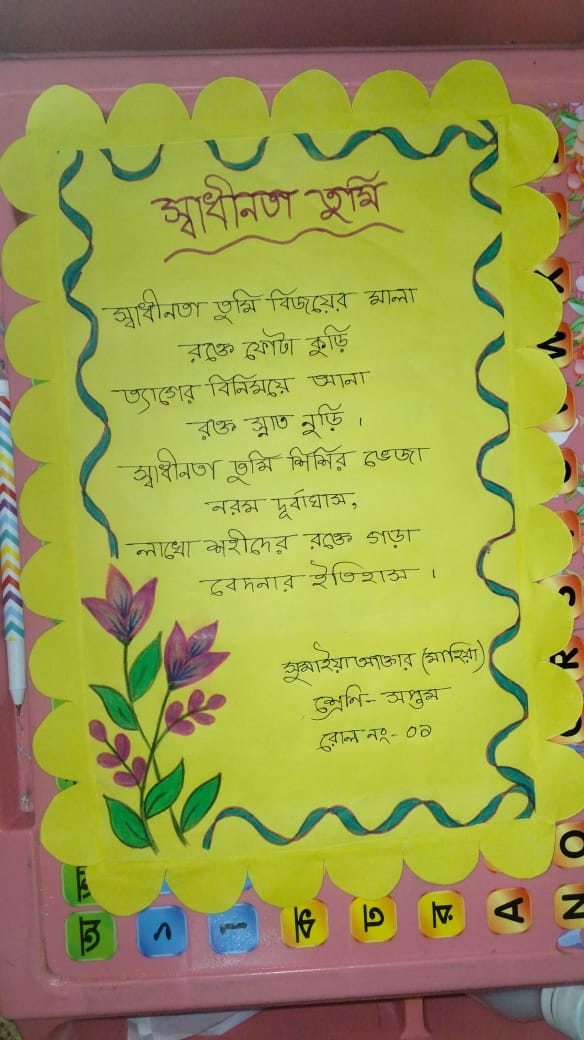 স্বাধীনতা তুমি
স্বাধীনতা তুমি বিজয়ের মালা
রক্তে ফোঁটা কুড়ি
ত্যাগের বিনিময়ে আনা
রক্ত স্নাত নুড়ি ।
স্বাধীনতা তুমি শিশির ভেজা
নরম দূর্বাঘাস,
লাখো শহীদের রক্তে গড়া
বেদনার ইতিহাস ।
সুমাইয়া আক্তার (মাহিরা)
শ্রেণি- সপ্তম
রোল নং- ০১
অ ১ । ক ত র A N O